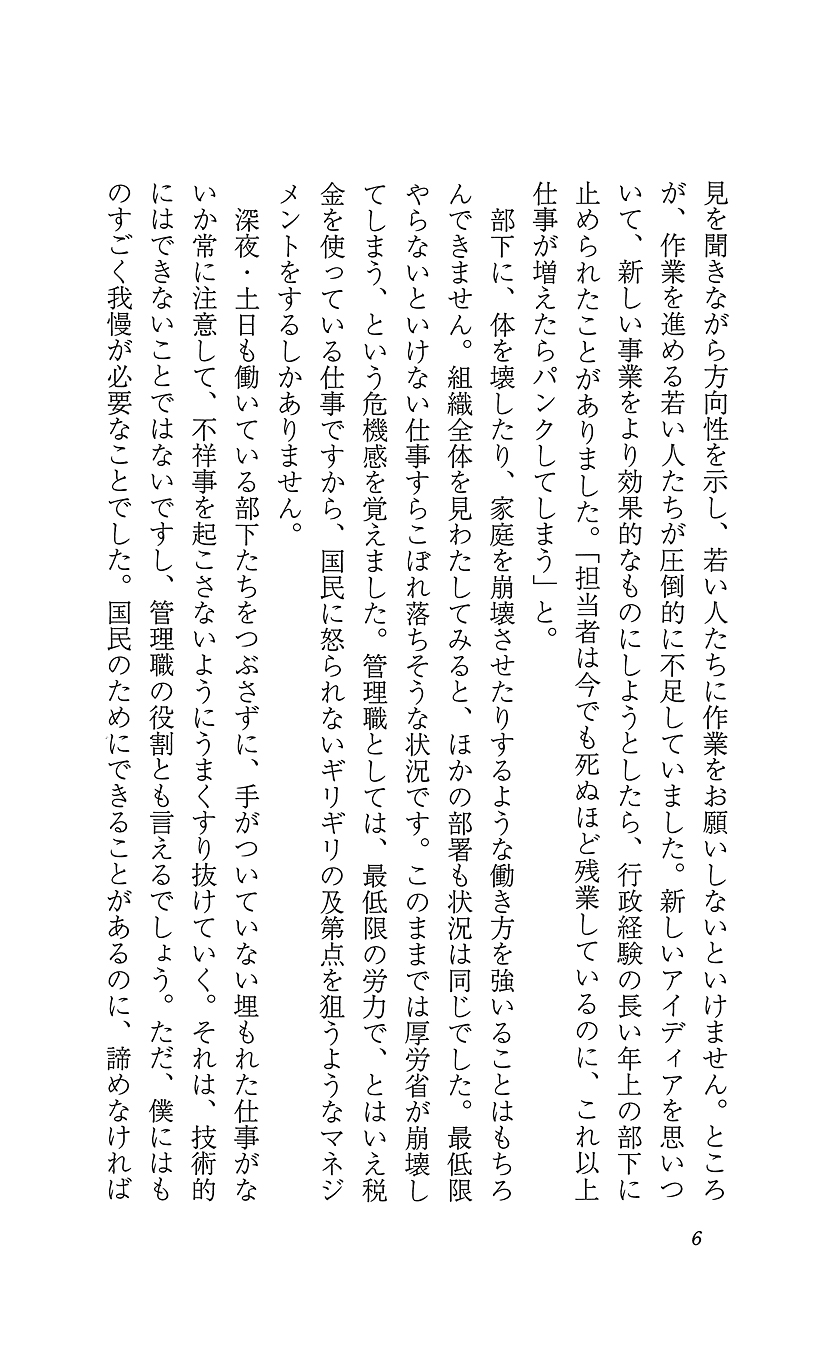 見を聞きながら方向性を示し、若い人たちに作業をお願いしないといけません。ところ
が、作業を進める若い人たちが圧倒的に不足していました。新しいアイディアを思いつ
いて、新しい事業をより効果的なものにしようとしたら、行政経験の長い年上の部下に
止められたことがありました。「担当者は今でも死ぬほど残業しているのに、これ以上
仕事が増えたらパンクしてしまう」と。
部下に、体を壊したり、家庭を崩壊させたりするような働き方を強いることはもちろ
んできません。組織全体を見わたしてみると、ほかの部署も状況は同じでした。最低限
やらないといけない仕事すらこぼれ落ちそうな状況です。このままでは厚労省が崩壊し
てしまう、という危機感を覚えました。管理職としては、最低限の労力で、とはいえ税
金を使っている仕事ですから、国民に怒られないギリギリの及第点を狙うようなマネジ
メントをするしかありません。
深夜・土日も働いている部下たちをつぶさずに、手がついていない埋もれた仕事がな
いか常に注意して、不祥事を起こさないようにうまくすり抜けていく。それは、技術的
にはできないことではないですし、管理職の役割とも言えるでしょう。ただ、僕にはも
のすごく我慢が必要なことでした。国民のためにできることがあるのに、諦めなければ
6